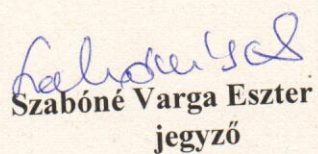 Szabóné Varga Eszter
jegyző